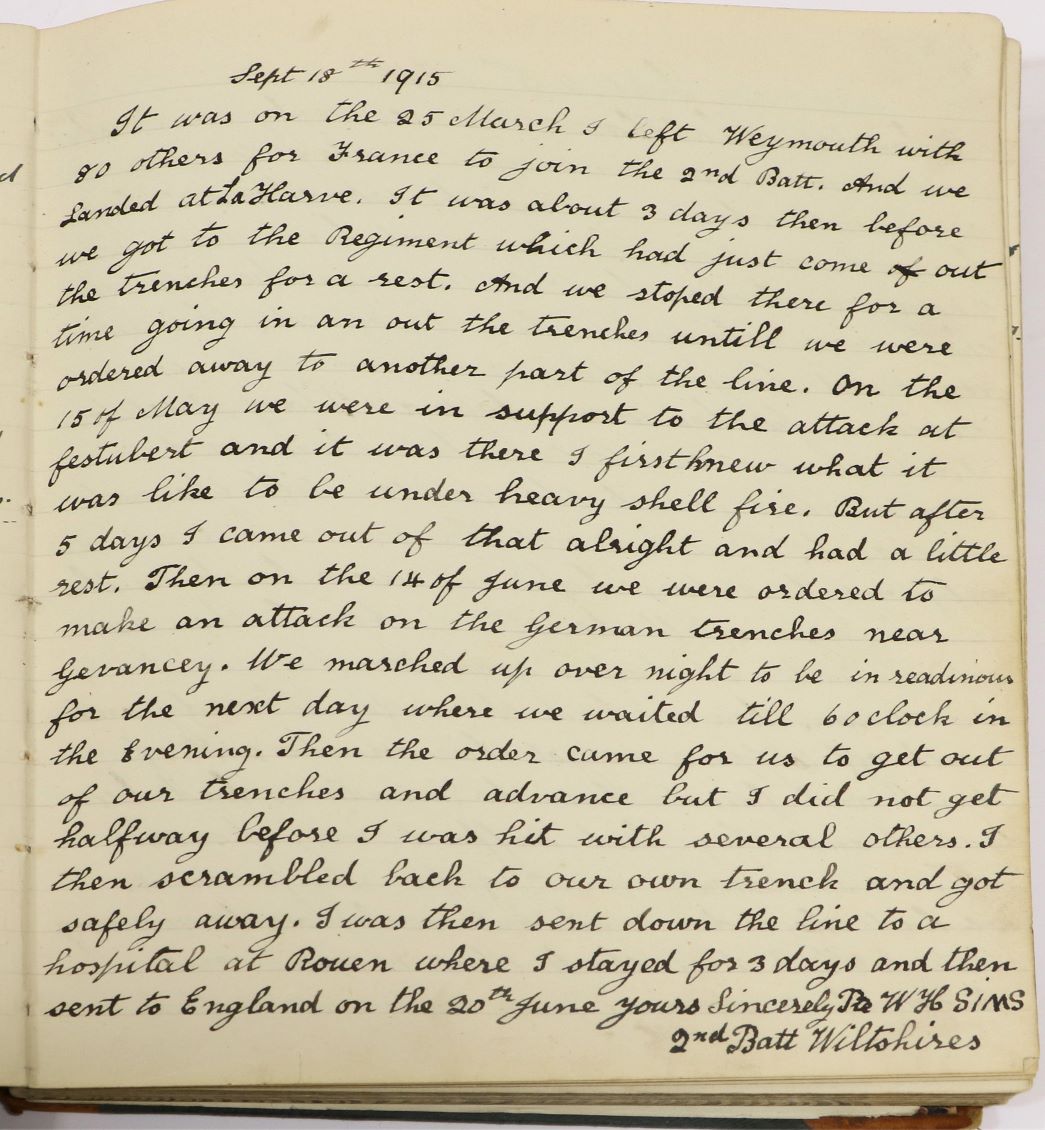 Sept 18th 1915
It was on the 25 March I left Weymouth with
80 others for France to join the 2nd Batt. And we
Landed at La Harve. It was about 3 days then before
we got to the Regiment which had just come of out
the trenches for a rest. And we stoped there for a
time going in an out the trenches untill we were
ordered away to another part of the line. On the
15 of May we were in support to the attack at
festubert and it was there I first knew what it
was like to be under heavy shell fire. But after
5 days I came out of that alright and had a little
rest. Then on the 14 of June we were ordered to
make an attack on the German trenches near
Gevancey. We marched up over night to be in readinous
for the next day where we waited till 6 oclock in
the Evening. Then the order came for us to get out
of our trenches and advance but I did not get
halfway before I was hit with several others. I
then scrambled back to our own trench and got
safely away. I was then sent down the line to a
hospital at Rouen where I stayed for 3 days and then
sent to England on the 20th June yours Sincerely Pte W H SIMS
2nd Batt Wiltshires